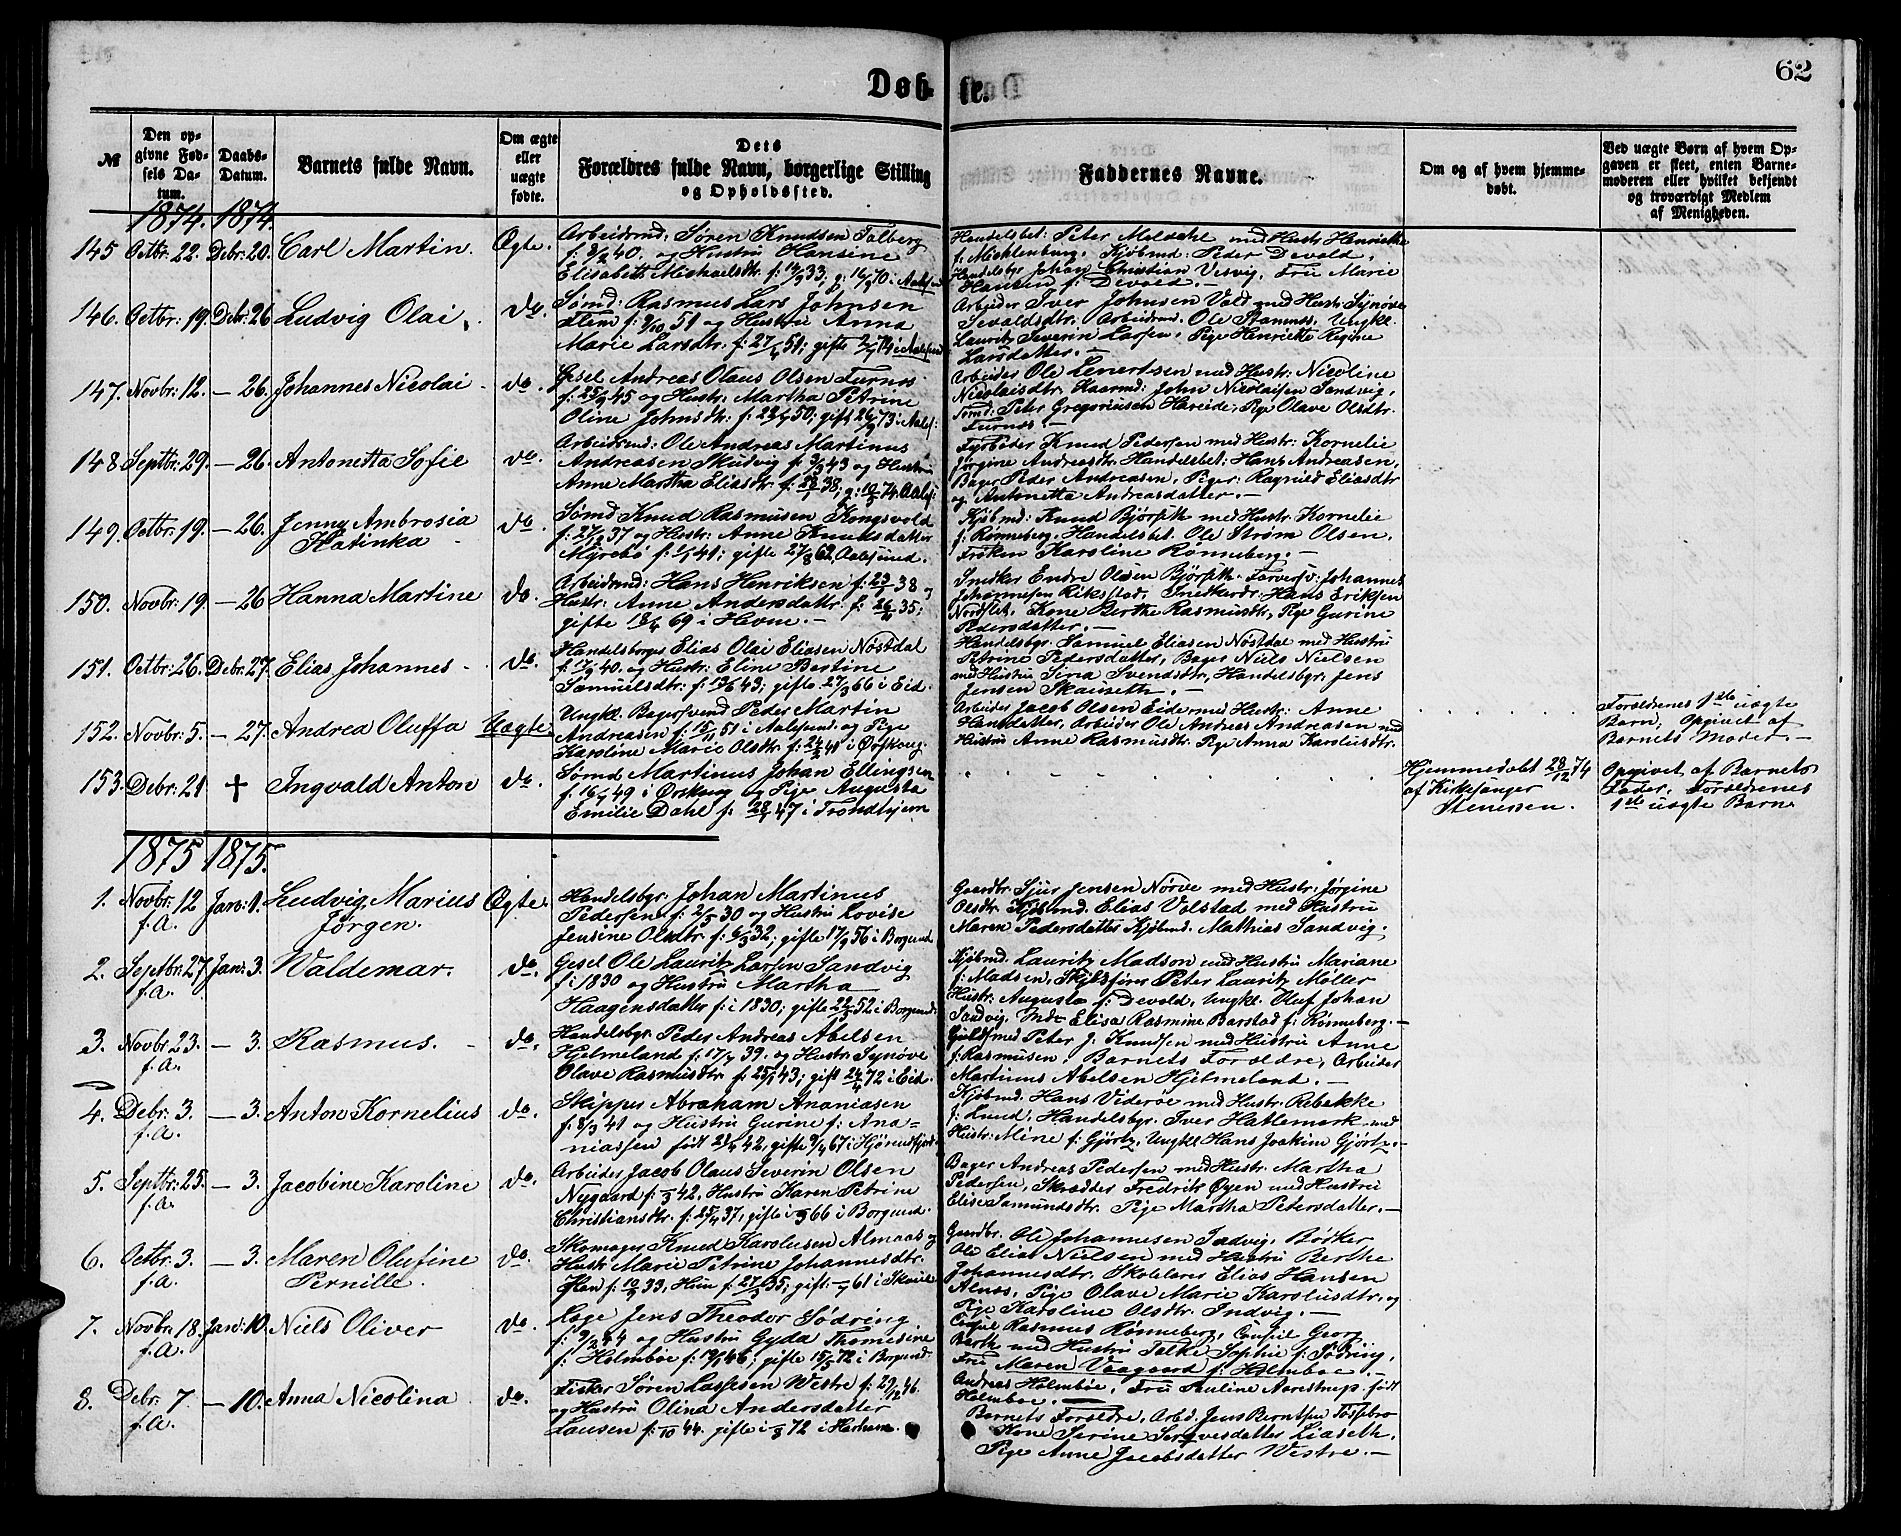 Døb-
te.
62
№
Den op-
givne Fød-
sels Da-
tum.
Daabs-
Datum.
Barnets fulde Navn.
Om ægte
eller
uægte
fødte.
Dets
Forældres fulde Navn, borgerlige Stilling
og Opholdssted.
Faddernes Navne.
Om og af hvem hjemme-
døbt.
Ved uægte Børn af hvem Op-
gaven er skeet, enten Barne-
moderen eller hvilket bekjendt
og troværdigt Medlem
af Menigheden.
1874. 1874.
145 Octbr: 22. Debr: 20. Carl Martin. Ægte.
Arbeidsmd: Søren Knudsen Talberg
f: 40. og Hustru Hansine
Elisabeth Michaelsdtr. f: 33; g: 70 i Aalesund
Handelsbet: Peter Moldahl med Hustr. Henriette
f: Mechlenburg, Kjøbmd: Peder Devold,
Handelsbgr Johan Christian Vesvig, Fru Marie
Hansen f: Devold. —
146. Octbr: 19. Debr: 26 Ludvig Olai. do.
Sømd: Rasmus Lars Johnsen
Flem f: 9/10 51 og Hustru Anna
Marie Larsdtr: f: 51; gifte 74 i Aalesund
Arbeider Iver Johnsen Vold med Hustr. Synøve
Sevaldsdtr: Arbeidsmd. Ole Stamnes. Ungkl.
Lauritz Severin Larsen. Pige Henriette Regine
Larsdatter. —
147. Novbr: 12. — 26. Johannes Nicolai do.
Gesel Andreas Olaus Olsen Furnes
f: 45 og Hustr: Martha Petrine
Oline Johnsdtr. f: 50; gift 73 i Aales:
Arbeider Ole Lenertsen med Hustr: Nicoline
Nicolaisdtr. Haarmd: John Nicolaisen Sandvig,
Sømd: Peter Gregoriusen Hareide, Pige Olave Olsdtr.
Furnes. —
148 Septbr: 29. — 26. Antonetta Sofie do.
Arbeidsmd: Ole Andreas Martinus
Andreasen Skudvig f: 3/9 43 og Hustru
Anne Martha Eliasdtr f: 38; g: 74 Aales:
Fyrbøder Knud Pedersen med Hustr: Kornelie
Jørgine Andreasdtr. Handelsbet: Hans Andreasen,
Bager Peder Andreasen, Piger: Ragnild Eliasdtr
og Antonetta Andreasdatter. —
149. Octbr: 19. — 26. Jenny Ambrosia
Katinka do
Sømd Knud Rasmusen Kongsvold
f: 37 og Hustr: Anne Knudsdatter
Myrebø f: 41; gifte 62 Aalesund.
Kjøbmd: Knud Bjørseth med Hustr: Kornelie
f: Rønneberg. Handelsbet. Ole Strøm Olsen.
Frøken Karoline Rønneberg. —
150. Novbr: 19. — 26 Hanna Martine do.
Arbeidsmd: Hans Henriksen f: 38 og
Hustr: Anne Andersdattr. f: 35;
gifte 69 i Hevne. —
Snedker Endre Olsen Bjørseth. Farversv: Johannes
Johannesen Rikestad, Snedkerdr: Hans Eriksen
Nordflet, Kone Berthe Rasmusdtr, Pige Gurine
Pedersdatter. —
151. Octbr: 26. Debr: 27. Elias Johannes do.
Handelsborger Elias Olai Eliasen Nøstdal
f: 40. og Hustr: Eline Bertine
Samuelsdtr: f: 43; gifte 66 i Eid.
Handelsbgr. Samuel Eliasen Nøstdal med Hustru
Petrine Pedersdatter, Bager Niels Nielsen
med Hustru Siria Svendsdtr, Handelsbgr. Jens
Jensen Skauseth. —
152. Novbr: 5. — 27. Andrea Oluffa Uægte
Ungkl. Bagersvend Peder Martin
Andreasen f: 51 i Aalesund. og Pige
Karoline Marie Olsdtr. f: 48 i Ørskoug.
Arbeider Jacob Olsen Eide med Hustr: Anne
Hansdatter, Arbeider Ole Andreas Andreasen med
Hustru Anne Rasmusdtr. Pige Anna Karolusdtr.
Forældrenes 1ste uægte
Barn, Opgivet af
Barnets Moder. —
153. Debr: 21 † Ingvald Anton do.
Sømd Martinus Johan Ellingsen
f: 49 i Ørskoug og Pige Augusta
Emilie Dahl f: 47 i Trondhjem
Hjemmedøbt 28/12 74
af Kirkesanger
Stenersen.
Opgivet af Barnets
Fader, Forældrenes
1ste uægte Barn
1875 1875.
1. Novbr: 12 Janr: 1. Ludvig Marius Ægte
f. A. Jørgen.
Handelsbgr. Johan Martinus
Pedersen f: 30 og Hustru Lovise
Jensine Olsdtr. f: 32; gifte 56 i Borgund
Gaardbr. Sjur Jensen Nørve med Hustr. Jørgine
Olsdtr. Kjøbmd. Elias Volstad med Hustru
Maren Pedersdatter Kjøbmd. Mathias Sandvig.
2. Septbr: 27 Jan: 3. Waldemar. do.
f. A.
Gesel Ole Lauritz Larsen Sandvig
f: i 1830 og Hustru Martha
Haagensdatter f: i 1830; gifte 52 i Borgund
Kjøbmd. Lauritz Madson med Hustru Mariane
f: Madsen, Skibsfører Peter Lauritz Møller
Hustr: Augusta f: Devold, Ungkl: Oluf Johan
Sandvig. Elisa Rasmine Barstad f: Rønneberg. —
3. Novbr 23. — 3. Rasmus. do.
f. A.
Handelsbgr. Peder Andreas Abelsen
Hjelmeland f: 39. og Hustr: Synøve
Olave Rasmusdtr. f: 43; gift 72 i Eid.
Guldsmed Peter J. Knudsen med Hustru Anne
f: Rasmusen, Barnets Forældre, Arbeider
Martinus Abelsen Hjelmeland. —
4. Debr: 3. — 3. Anton Kornelius do.
f. A.
Skipper Abraham Ananiasen
f: 8/3 41 og Hustru Gurine f: Ana-
niassen født 42, gifte 67 i Hjørundfjord
Kjøbmd. Hans Viderøe med Hustr. Rebekke
f: Lund, Handelsbgr. Iver Hatlemark med
Hustr: Mine f: Gjørtz, Ungkl Hans Joakim Gjørtz. —
5. Septbr: 25. — 3. Jacobine Karoline do.
f. A.
Arbeider Jacob Olaus Severin Olsen
Nygaard f: 42, Hustru Karen Petrine
Christiansdtr. f: 37, gifte i 66 i Borgund.
Bager Andreas Pedersen med Hustr. Martha
Pedersen, Skrædder Fredrik Øyen med Hustru
Elise Samundsdtr. Pige Martha Petersdatter. —
6. Octbr: 3. — 3. Maren Olufine do.
f. A. Pernille.
Skomager Knud Karolusen Almaas og
Hustr Marie Petrine Johannesdtr.
Han f: 33, Hun f: 35; gift: 61 i Skouie
Gaardbr. Ole Johannesen Indvig, Bødker
Ole Elias Nielsen med Hustru Berthe
Johannesdtr. Skolelærer Elias Hansen
Alnes, Pige Olave Marie Karolusdtr, og
Pige Karoline Olsdtr. Indvig. —
7. Novbr: 18. Jan: 10. Niels Oliver do.
f. A.
Læge Jens Theodor Sødring
f: 24 og Hustru Gyda Thomesine
f: Holmboe f: 46; gifte 72 i Borgund.
Consul Rasmus Rønneberg, Consul Georg
Barth med Hustru Talke Sophie f: Sødring,
Fru Maren Vaagaard f: Holmboe. —
Andreas Holmboe, Fru Pauline Aarestrup født
Holmboe.
8. Debr: 7. — 10. Anna Nicolina do.
f. A.
Fisker Søren Lassesen Westre f: 29/12 46.
og Hustru Olina Andersdatter
Lausen f: 44. gifte 72 i Harham.
Barnets Forældre, Arbd. Jens Berntsen Tøssebro
Kone Serine Servesdatter Liaseth,
Pige Anne Jacobsdatter Westre. —